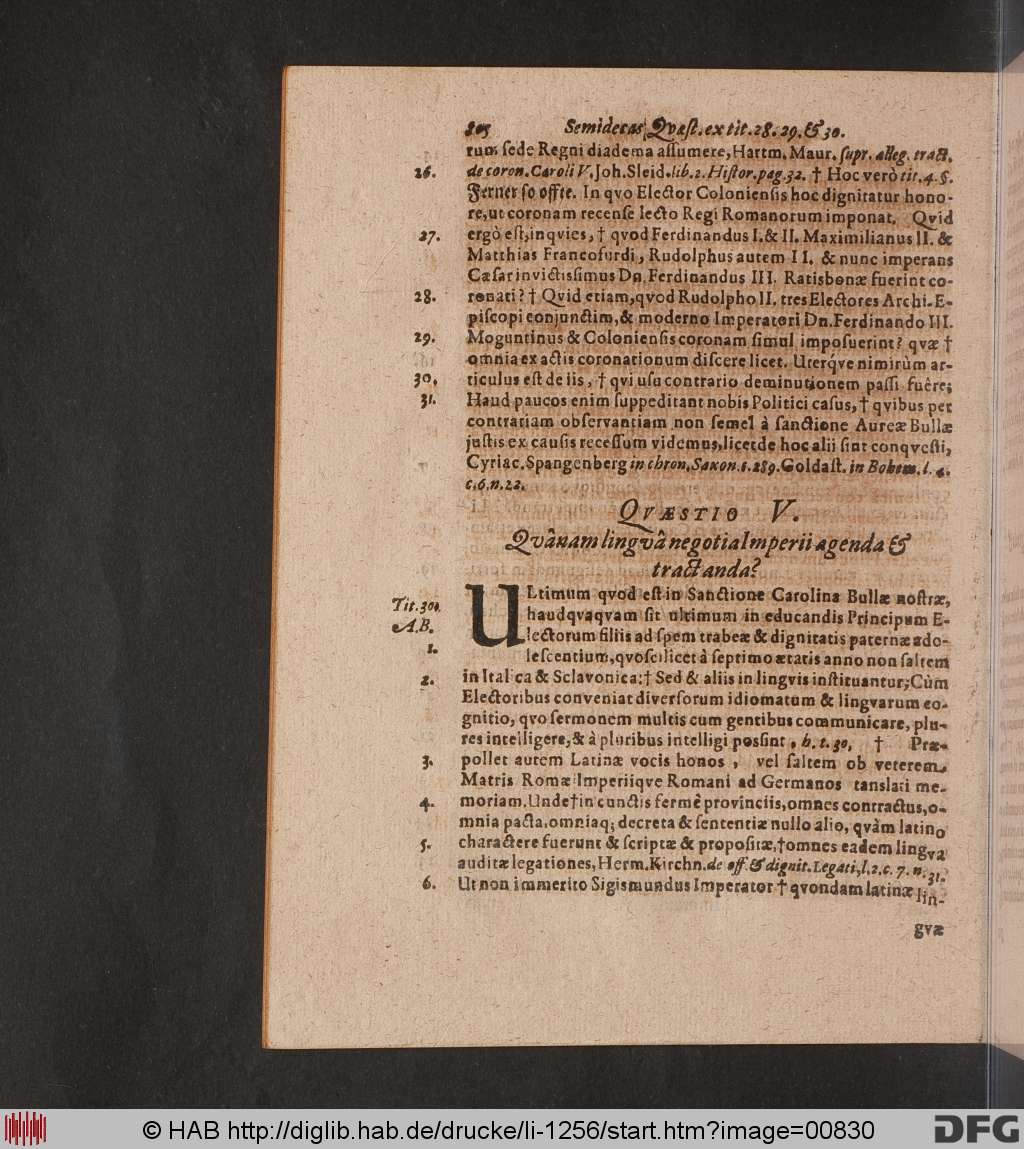 805 Semidecas Qvæst. ex tit. 28. 29. & 30.
rum sede Regni diadema assumere, Hartm. Maur. supr. alleg. tract.
26. de coron. Caroli V. Joh. Sleid. lib. 2. Histor. pag. 32. † Hoc verò tit. 4. §.
Ferner so offte. In qvo Elector Coloniensis hoc dignitatur hono-
re, ut coronam recens electo Regi Romanorum imponat. Qvid
27. ergò est, inqvies, † qvod Ferdinandus I. & II. Maximilianus II. &
Matthias Francofurdi, Rudolphus autem II. & nunc imperans
Cæsar invictissimus Dn. Ferdinandus III. Ratisbonæ fuerint co-
28. ronati? † Qvid etiam, qvod Rudolpho II. tres Electores Archi-E-
piscopi conjunctim, & moderno Imperatori Dn. Ferdinando III.
29. Moguntinus & Coloniensis coronam simul imposuerint? qvæ †
omnia ex actis coronationum discere licet. Uterq́ve nimirùm ar-
30. ticulus est de iis, † qvi usu contrario deminutionem passi fuêre;
31. Haud paucos enim suppeditant nobis Politici casus, † qvibus per
contrariam observantiam non semel à sanctione Aureæ Bullæ
justis ex causis recessum videmus, licet de hoc alii sint conqvesti,
Cyriac. Spangenberg in chron. Saxon. c. 289. Goldast. in Bohem. l. 4.
c. 6. n. 22.
QVÆSTIO V.
Qvânam lingvâ negotia Imperii agenda &
tractanda?
Tit. 30. ULtimum qvod est in Sanctione Carolina Bullæ nostræ,
A. B. haudqvaqvam sit ultimum in educandis Principum E-
1. lectorum filiis ad spem trabeæ & dignitatis paternæ ado-
lescentium, qvos scilicet à septimo ætatis anno non saltem
2. in Italica & Sclavonica: † Sed & aliis in lingvis instituantur; Cùm
Electoribus conveniat diversorum idiomatum & lingvarum co-
gnitio, qvo sermonem multis cum gentibus communicare, plu-
res intelligere, & à pluribus intelligi possint, h. t. 30. † Præ-
3. pollet autem Latinæ vocis honos, vel saltem ob veterem
Matris Romæ Imperiiqve Romani ad Germanos tanslati me-
4. moriam. Unde † in cunctis fermè provinciis, omnes contractus, o-
mnia pacta, omniaq; decreta & sententiæ nullo alio, qvàm latino
5. charactere fuerunt & scriptæ & propositæ, † omnes eadem lingva
auditæ legationes, Herm. Kirchn. de off. & dignit. Legati, l. 2. c. 7. n. 31.
6. Ut non immerito Sigismundus Imperator † qvondam latinæ lin-
gvæ
© HAB http://diglib.hab.de/drucke/li-1256/start.htm?image=00830
DFG